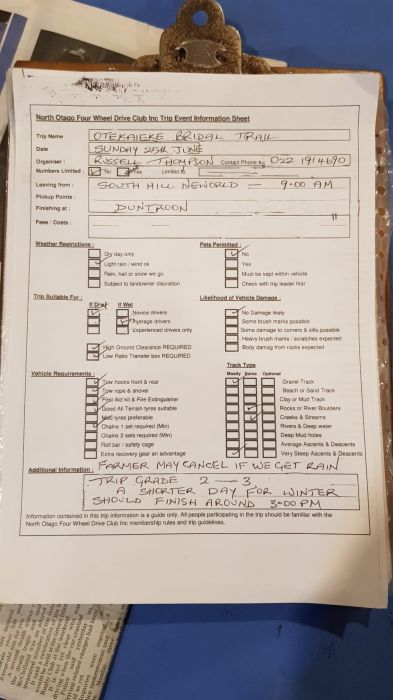 North Otago Four Wheel Drive Club Inc Trip Event Information Sheet
Trip Name OTEKAIEKE BRIDAL TRAIL
Date SUNDAY 25th JUNE
Organiser : RUSSELL THOMPSON Contact Phone 022 1914690
Numbers Limited : No Yes Limited to
Leaving from : SOUTH HILL NEWORLD - 9.00 AM
Pickup Points :
Finishing at : DUNTROON
Fees / Costs : "
Weather Restrictions : Pets Permitted :
Dry day only No
Light rain / wind ok Yes
Rain, hail or snow we go Must be kept within vehicle
Subject to landowner discretion Check with trip leader first
Trip Suitable For : If Dry If Wet Likelihood of Vehicle Damage :
Novice drivers No Damage likely
Average drivers Some brush marks possible
Experienced drivers only Some damage to corners & sills possible
Heavy brush marks / scratches expected
High Ground Clearance REQUIRED Body damag from rocks expected
Low Ratio Transfer box REQUIRED
Track Type
Vehicle Requirements : Mostly Some Optional
Tow hooks front & rear Gravel Track
Tow rope & shovel Beach or Sand Track
First Aid kit & Fire Extinguisher Clay or Mud Track
Good All Terrain tyres suitable Rocks or River Boulders
Mud tyres preferable Creeks & Streams
Chains 1 set required (Min) Rivers & Deep water
Chains 2 sets required (Min) Deep Mud holes
Roll bar / safety cage Average Ascents & Descents
Extra recovery gear an advantage Very Steep Ascents & Descents
Additional Information : FARMER MAY CANCEL IF WE GET RAIN
TRIP GRADE 2 - 3
A SHORTER DAY FOR WINTER
SHOULD FINISH AROUND 3-00 PM
Information contained in this trip information is a guide only. All people participating in the trip should be familiar with the
North Otago Four Wheel Drive Club Inc membership rules and trip guidelines.